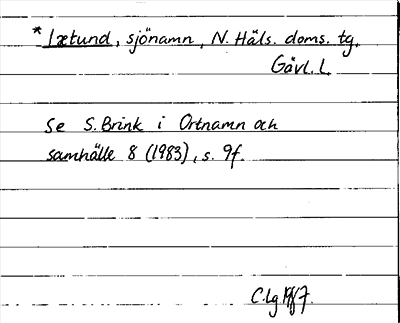 * Lætund, sjönamn, N. Häls. doms. tg.
Gävl. l.
Se S. Brink i Ortnamn och
samhälle 8 (1983), s. 9f.
C. Lg 1987.